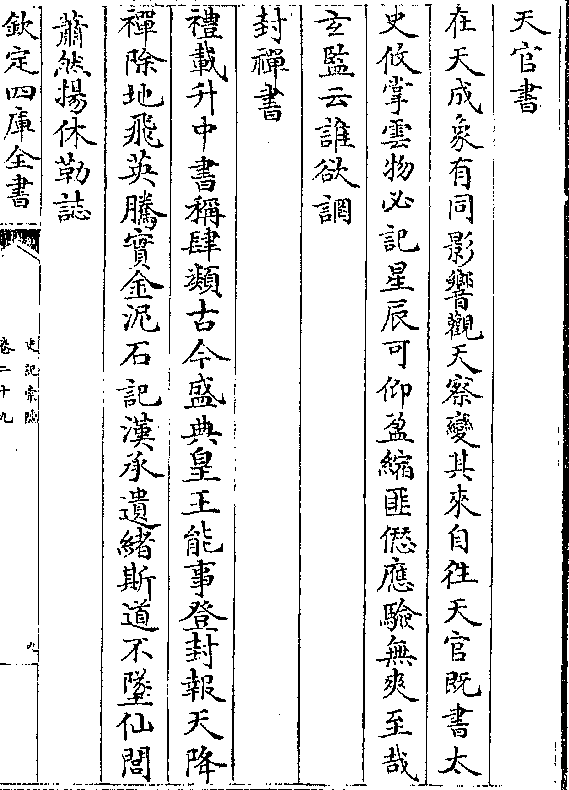 天官書
在天成象有同影響觀天察變其來自往天官既書太
史攸掌雲物必記星辰可仰盈縮匪愆應驗無爽至哉
玄監云誰欲調
封禪書
禮載升中書稱肆類古今盛典皇王能事登封報天降
禪除地飛英騰實金泥石記漢承遺緒斯道不墜仙閭
蕭然揚休勒誌
欽定四庫全書
史記索隱
卷二十九
九